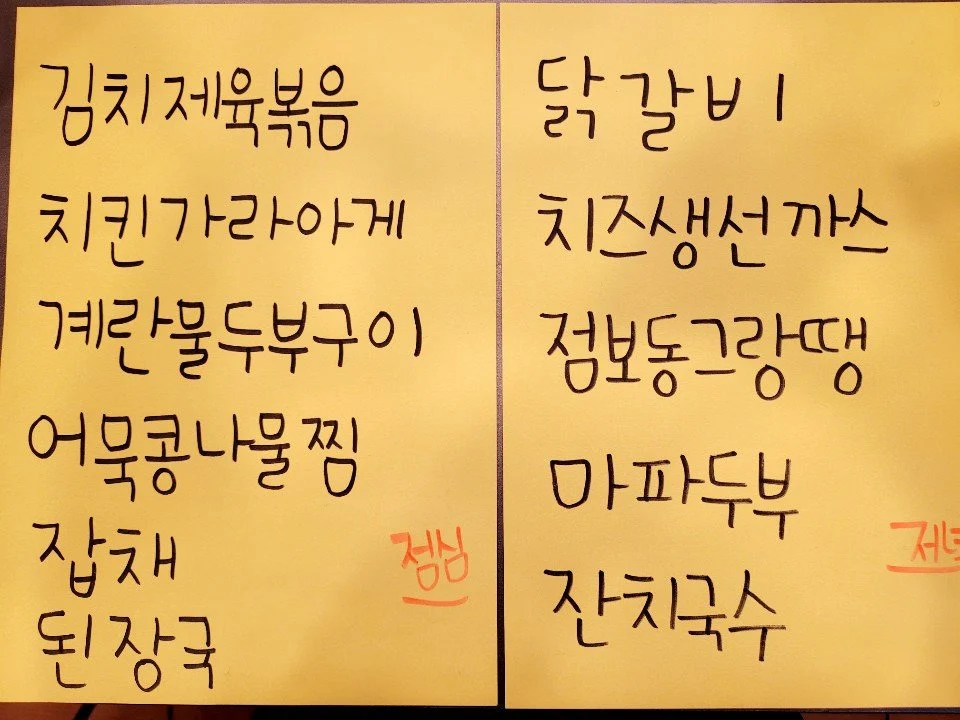 김치제육볶음
치킨가라아게
계란물두부구이
어묵콩나물찜
잡채
점심
된장국
닭갈비
치즈생선까스
점보동그랑땡
마파두부
저녁
잔치국수